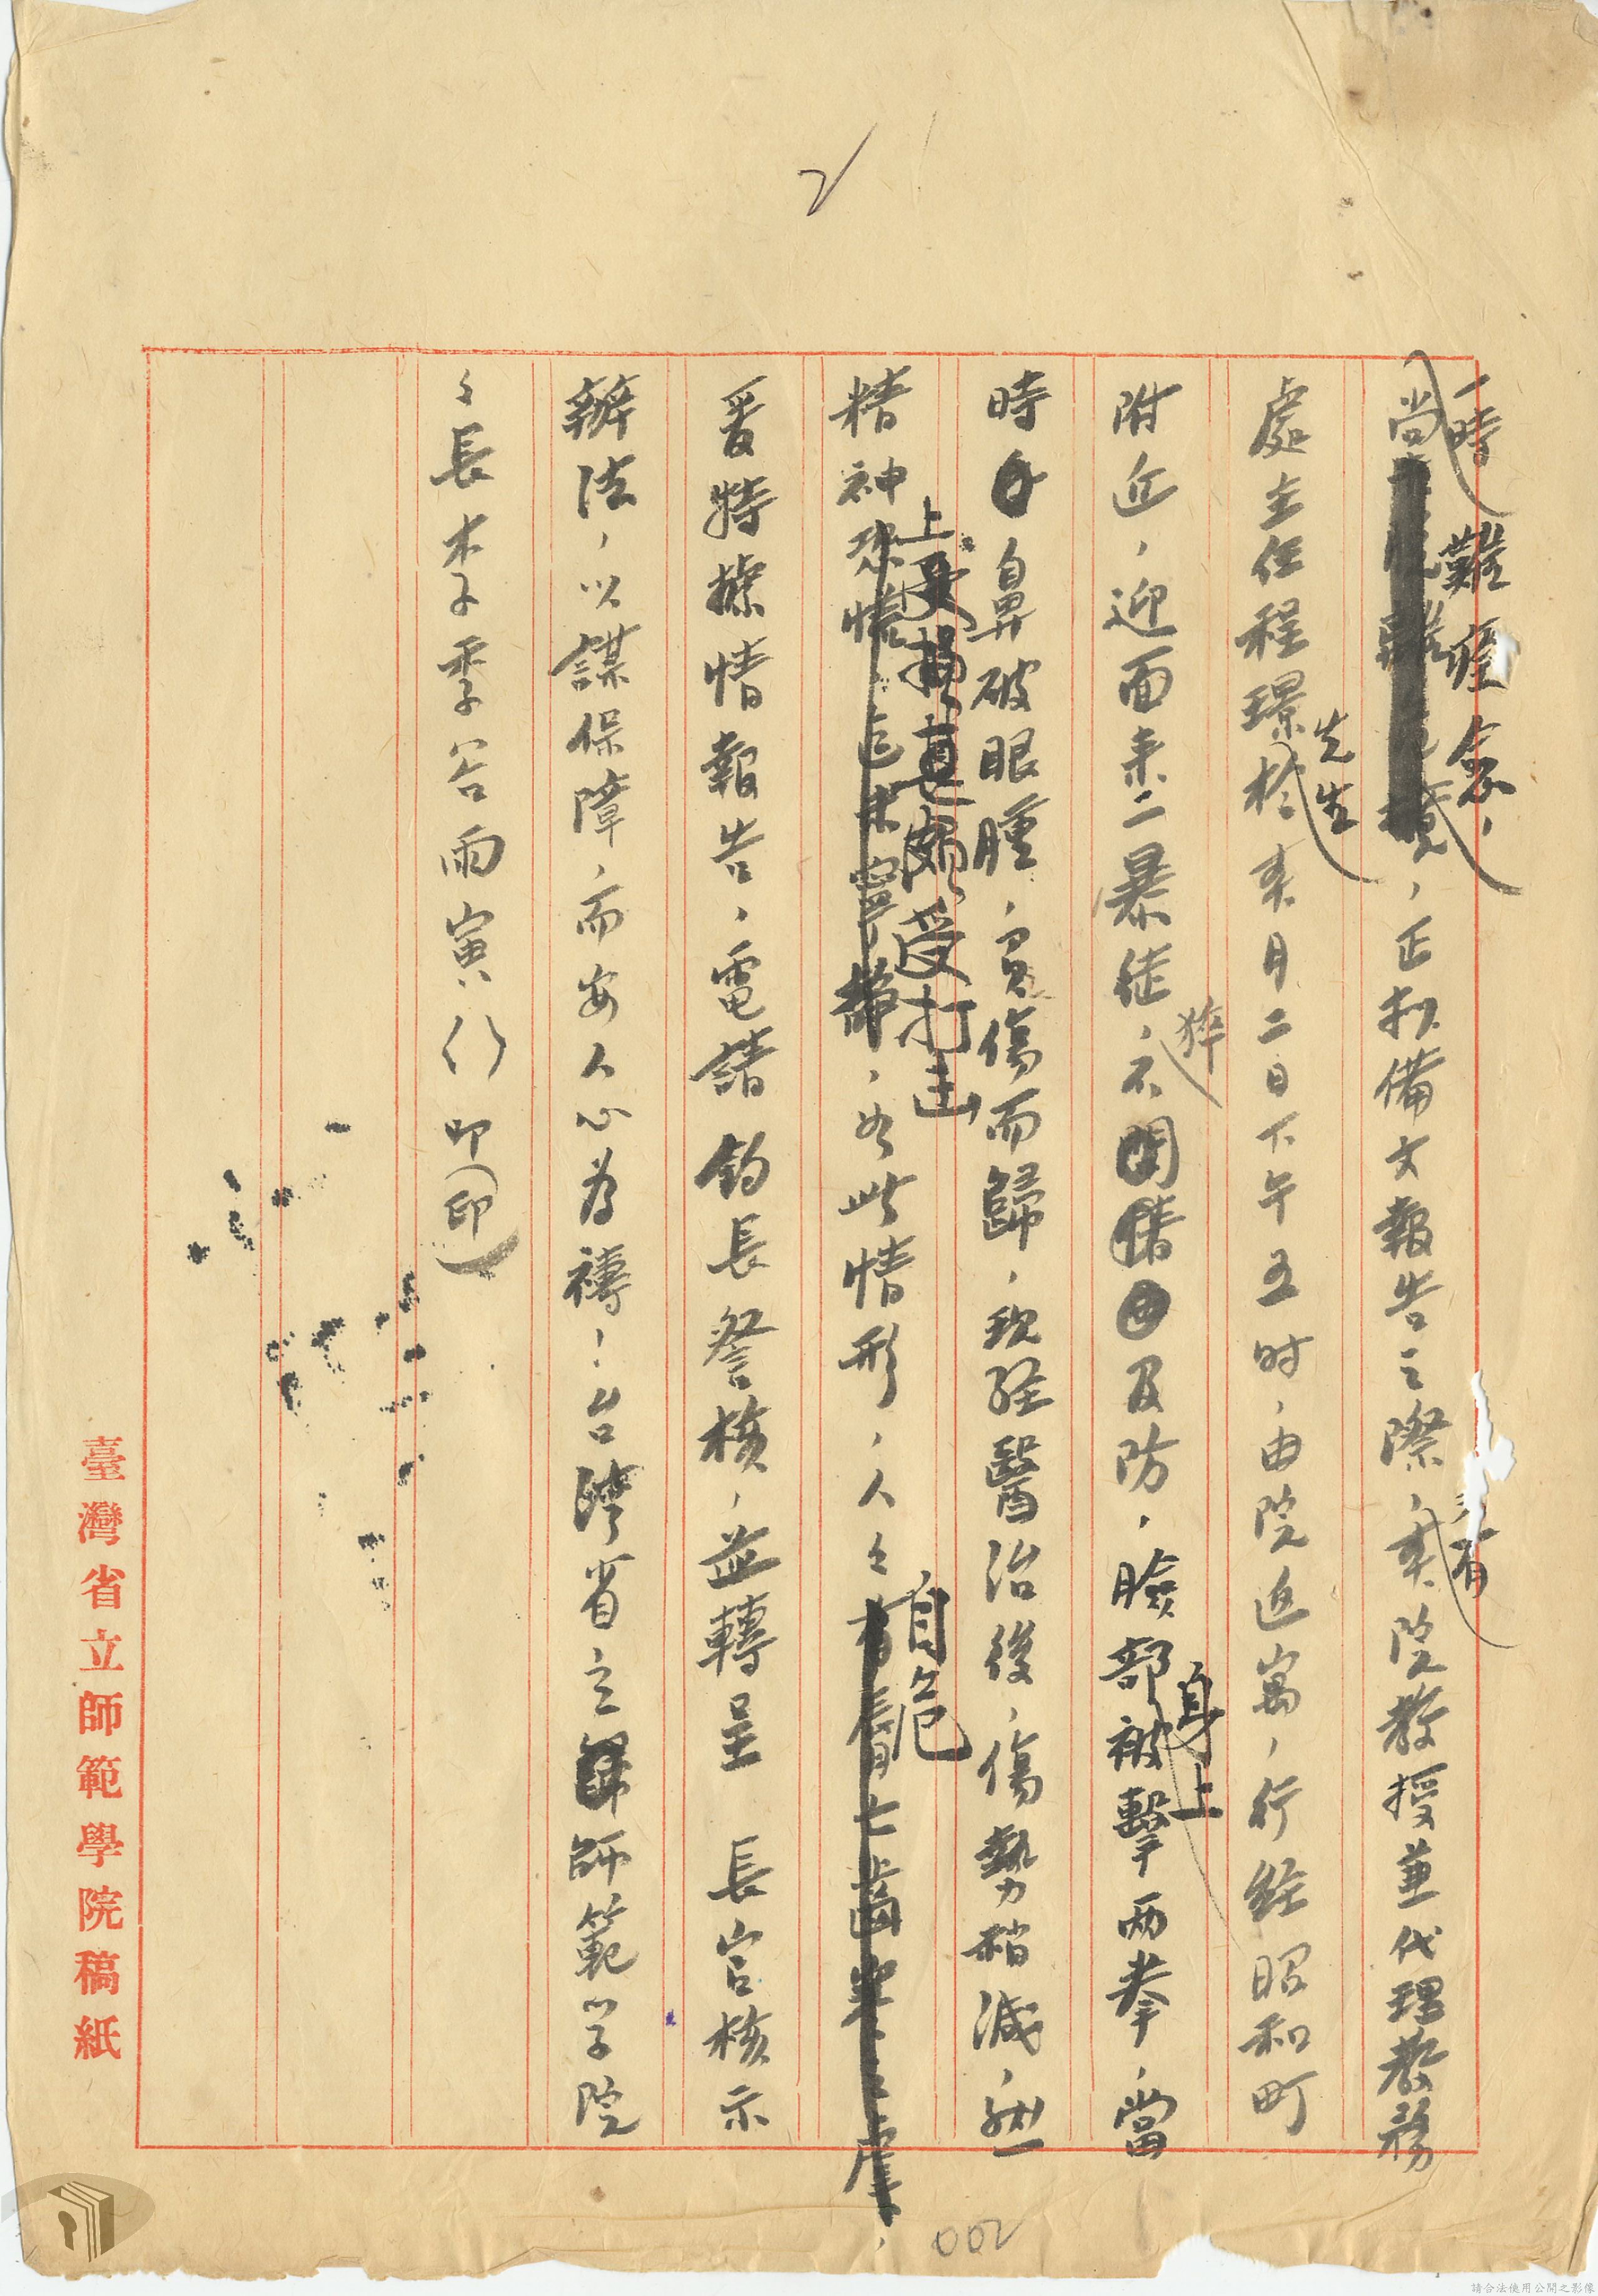 2
一時難痊愈，
尚，正擬備文報告之際，本院教授兼代理教務
又有
處主任程璟於本月二日下午五时，由院返寓，行經昭和町
先生
附近，迎面来二暴徒，不及防，臉部被擊两拳，當
猝
身上
時鼻破眼腫，負傷而歸，現經醫治後，傷勢稍減，然
精神恐慌，迄未寧静，如此情形，人々有唇亡齒寒之虞，
上受打击
自危
爰特據情報告，電請鈞長詧核，並轉呈 長官核示
辦法，以謀保障，而安人心為禱！台灣省立師範学院
院長李季谷雨寅（）叩（印）
臺灣省立師範學院稿紙
002
請合法使用公開之影像